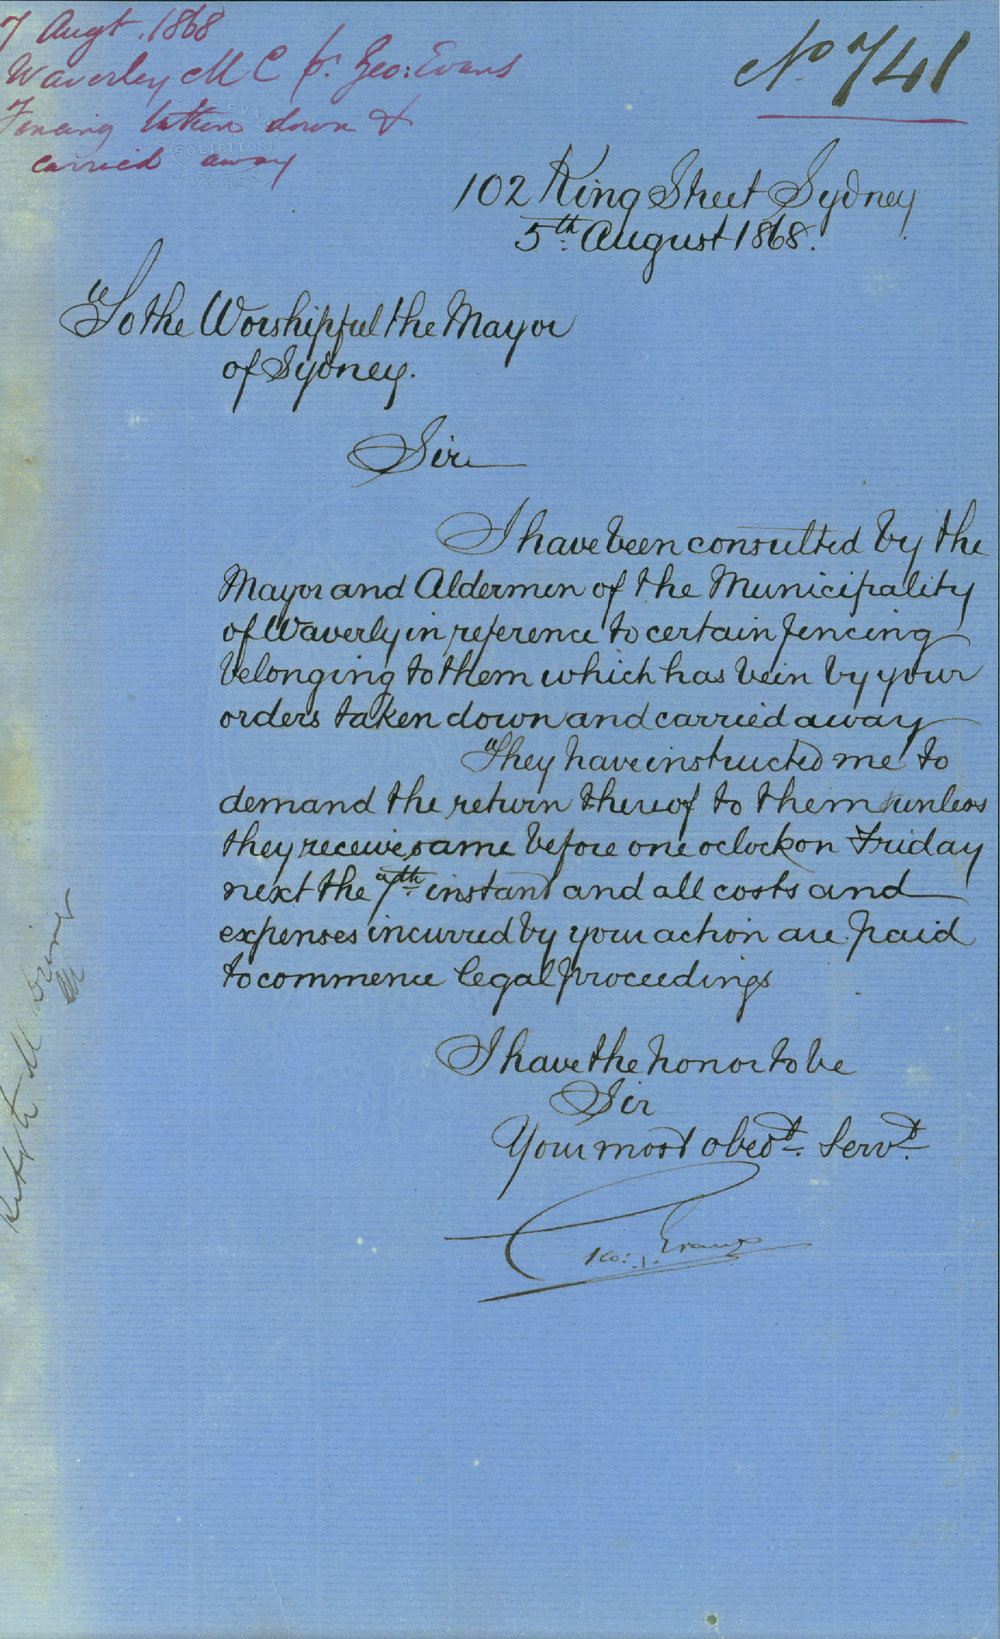 7 Augt. 1868
Waverley M C pr. Geo: Evans
Fencing taken down &
carried away
No 741
SOLICITOR
SYDNEY
102 King Street Sydney
5th August 1868.
To the Worshipful the Mayor
of Sydney.
Sir
I have been consulted by the
Mayor and Aldermen of the Municipality
of Waverly in reference to certain fencing
belonging to them which has been by your
orders taken down and carried away
They have instructed me to
demand the return thereof to them & unless
they receive same before one oclock on Friday
next the 7th instant and all costs and
expenses incurred by your action are paid
to commence legal proceedings
I have the honor to be
Sir
Your most obedt. Servt.
Geo: Evans